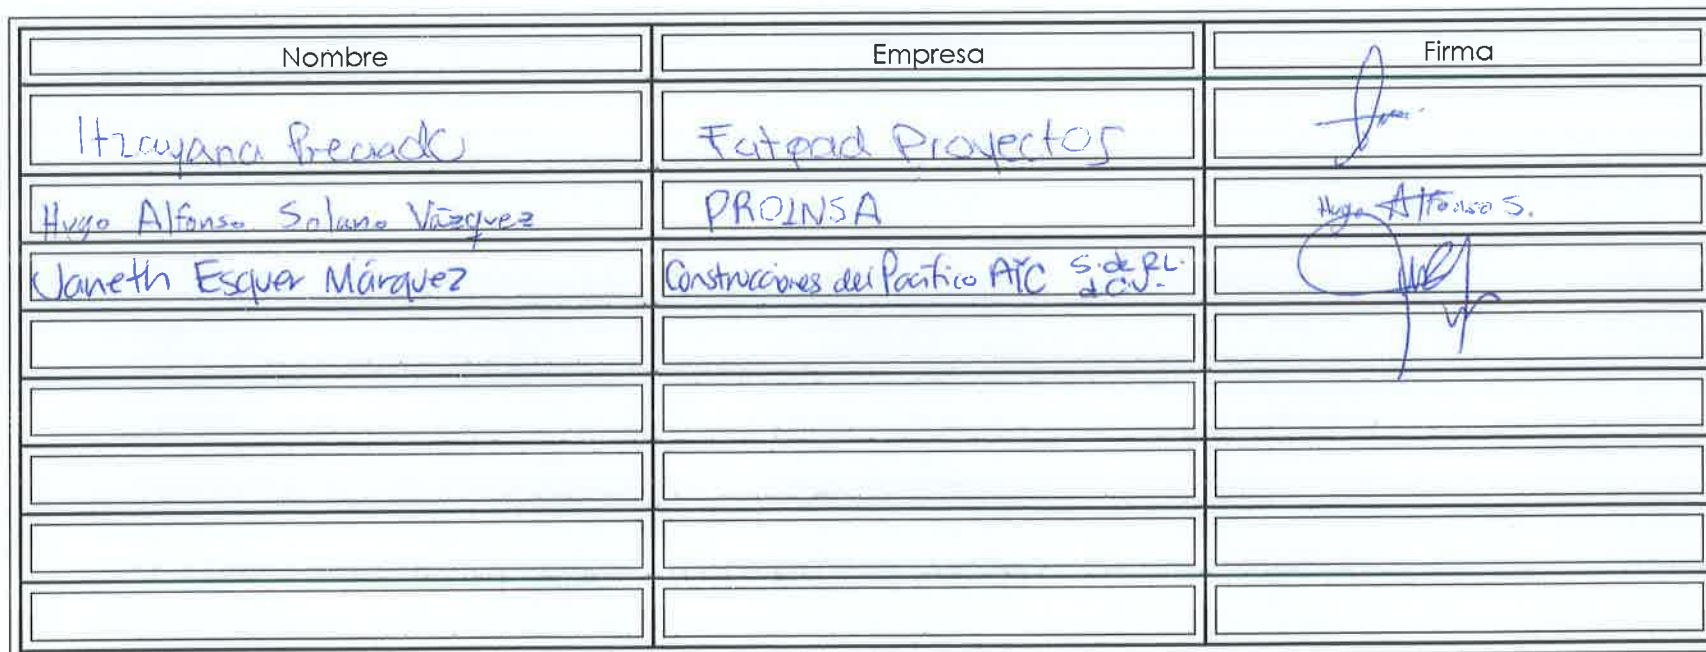 Nombre Empresa Firma
Itzayana Preciado Fatpad Proyectos
Hugo Alfonso Solano Vázquez PROINSA Hugo Alfonso S.
Janeth Esquer Márquez Construcciones del Pacífico AYC S. de R.L. de C.V.